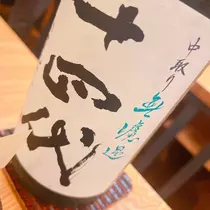 中取り 無濾過
十四代